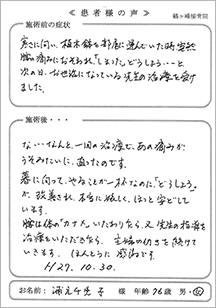 ≪ 患 者 様 の 声 ≫
鶴ヶ峰接骨院
施術前の症状
寒さに向い、植木鉢を部屋に運んでいた時突然
腰の痛みにおそわれ「しまった、どうしよう…」と
次の日、お世話になっている先生の治療を受け
ました。
施術後・・・
な…なんと、一回の治療で、あの痛みが
うそみたいに、直ったのです。
暮に向って、やることが一杯なのに「どうしよう」
が、改善され、本当に嬉しく、ほっと安どして
います。
腰は体の「カナメ」いたわりながら、又先生の指導を
治療をいただきながら、主婦の仕事を続けて
いきます。ほんとうに感謝です
H27.10.30.
お名前： 様 年齢 76歳 男・女